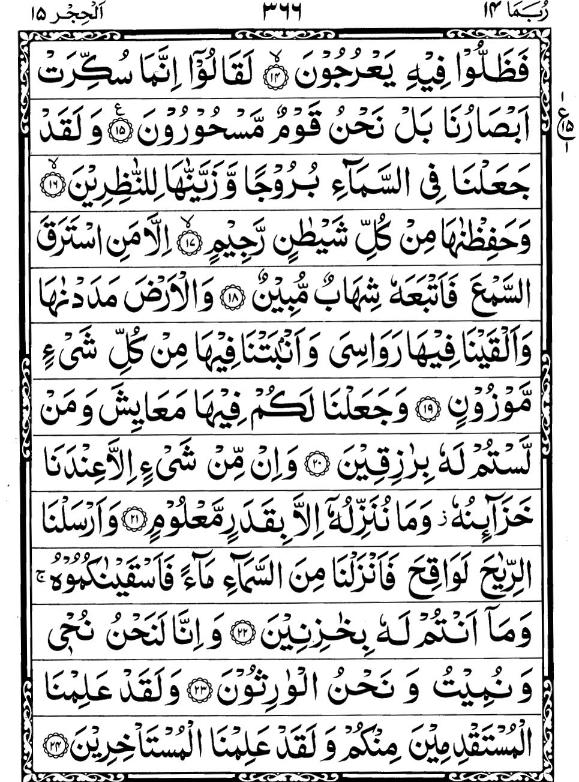 رُبَمَا ١٤
٣٦٦
اَلْحِجْر ١٥
فَظَلُّوْا فِیْهِ یَعْرُجُوْنَ ۙ﴿۱۴﴾ لَقَالُوْۤا اِنَّمَا سُكِّرَتْ
اَبْصَارُنَا بَلْ نَحْنُ قَوْمٌ مَّسْحُوْرُوْنَ ﴿۱۵﴾ ع وَ لَقَدْ
۱ ع ۱۵ ۱
جَعَلْنَا فِی السَّمَآءِ بُرُوْجًا وَّ زَیَّنّٰهَا لِلنّٰظِرِیْنَ ۙ﴿۱۶﴾
وَ حَفِظْنٰهَا مِنْ كُلِّ شَیْطٰنٍ رَّجِیْمٍ ۙ﴿۱۷﴾ اِلَّا مَنِ اسْتَرَقَ
السَّمْعَ فَاَتْبَعَهٗ شِهَابٌ مُّبِیْنٌ ﴿۱۸﴾ وَ الْاَرْضَ مَدَدْنٰهَا
وَ اَلْقَیْنَا فِیْهَا رَوَاسِیَ وَ اَنْۢبَتْنَا فِیْهَا مِنْ كُلِّ شَیْءٍ
مَّوْزُوْنٍ ﴿۱۹﴾ وَ جَعَلْنَا لَكُمْ فِیْهَا مَعَایِشَ وَ مَنْ
لَّسْتُمْ لَهٗ بِرٰزِقِیْنَ ﴿۲۰﴾ وَ اِنْ مِّنْ شَیْءٍ اِلَّا عِنْدَنَا
خَزَآىِٕنُهٗ ؗ وَ مَا نُنَزِّلُهٗۤ اِلَّا بِقَدَرٍ مَّعْلُوْمٍ ﴿۲۱﴾ وَ اَرْسَلْنَا
الرِّیٰحَ لَوَاقِحَ فَاَنْزَلْنَا مِنَ السَّمَآءِ مَآءً فَاَسْقَیْنٰكُمُوْهُ ۚ
وَ مَاۤ اَنْتُمْ لَهٗ بِخٰزِنِیْنَ ﴿۲۲﴾ وَ اِنَّا لَنَحْنُ نُحْیٖ
وَ نُمِیْتُ وَ نَحْنُ الْوٰرِثُوْنَ ﴿۲۳﴾ وَ لَقَدْ عَلِمْنَا
الْمُسْتَقْدِمِیْنَ مِنْكُمْ وَ لَقَدْ عَلِمْنَا الْمُسْتَاْخِرِیْنَ ﴿۲۴﴾